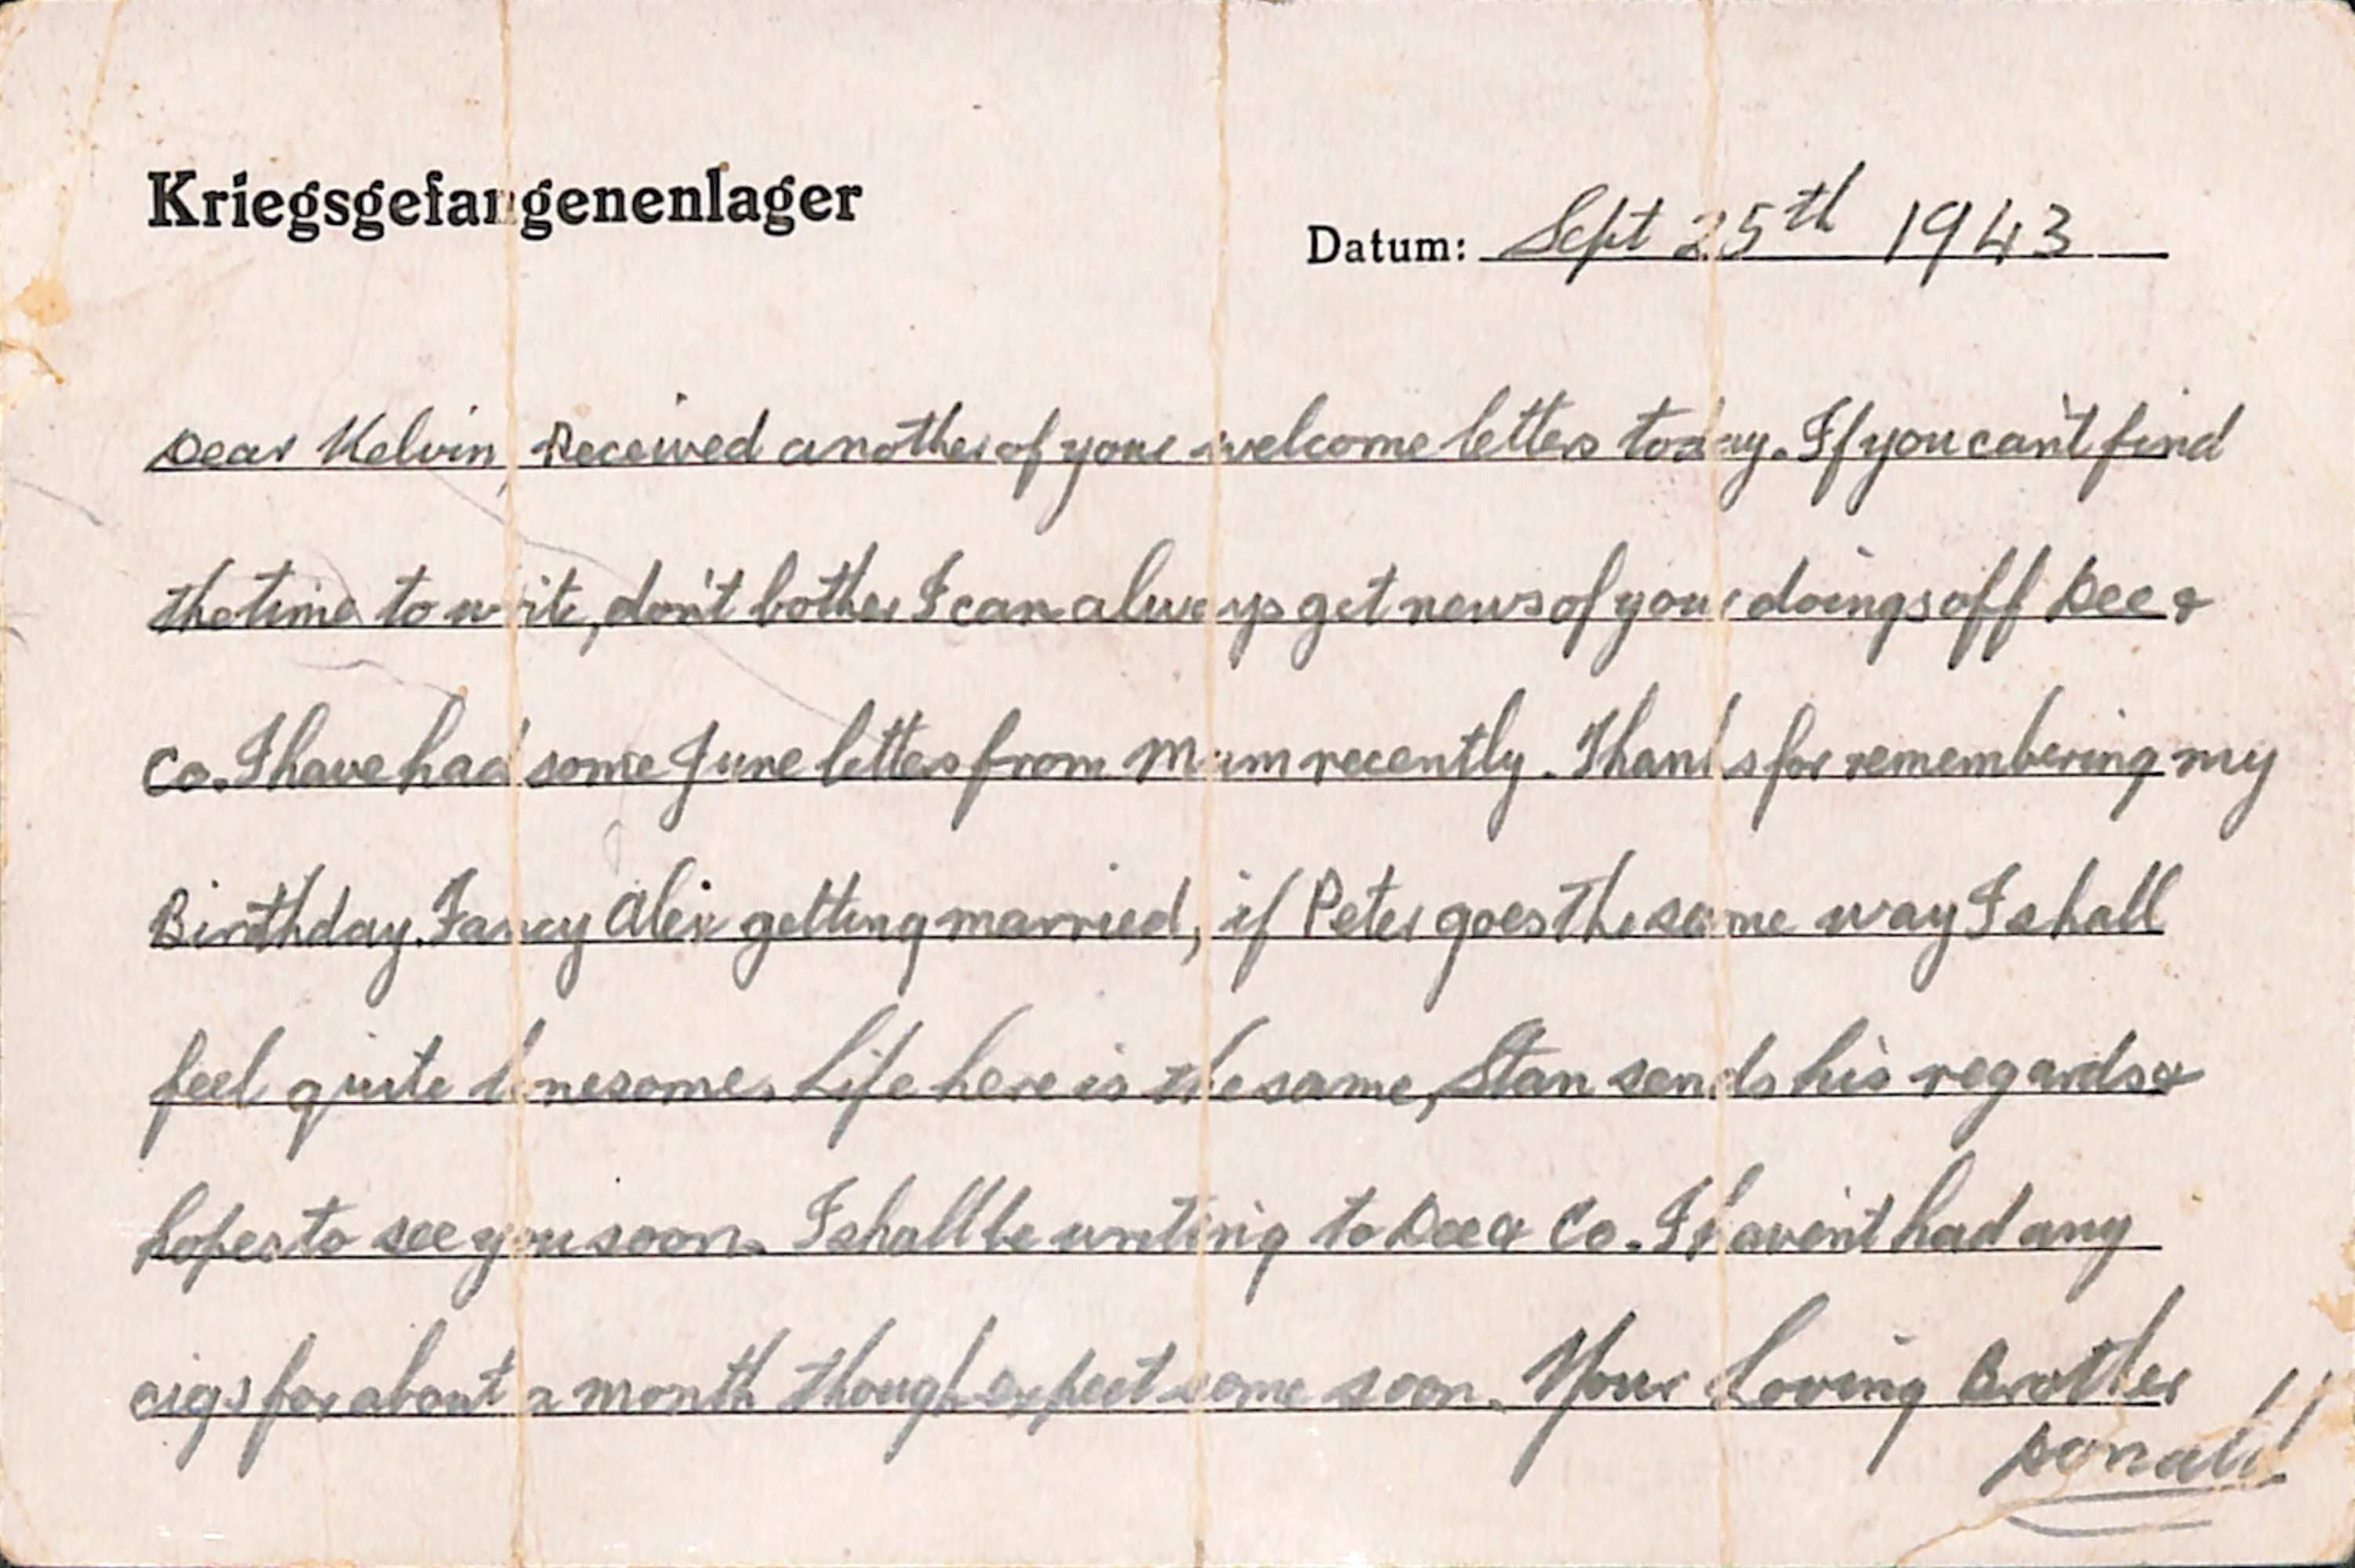 Kriegsgefangenenlager
Datum: Sept 25th 1943
Dear Kelvin, Received another of your welcome letters today. If you can't find
the time to write, don't bother I can always get news of your doings off Dee &
Co. I have had some June letters from Mum recently. Thanks for remembering my
Birthday. Fancy Alex getting married, if Peter goes the same way I shall
feel quite lonesome. Life here is the same, Stan sends his regards &
hopes to see you soon. I shall be writing to Dee & Co. I haven't had any
cigs for about a month though expect some soon. Your Loving Brother
Donald